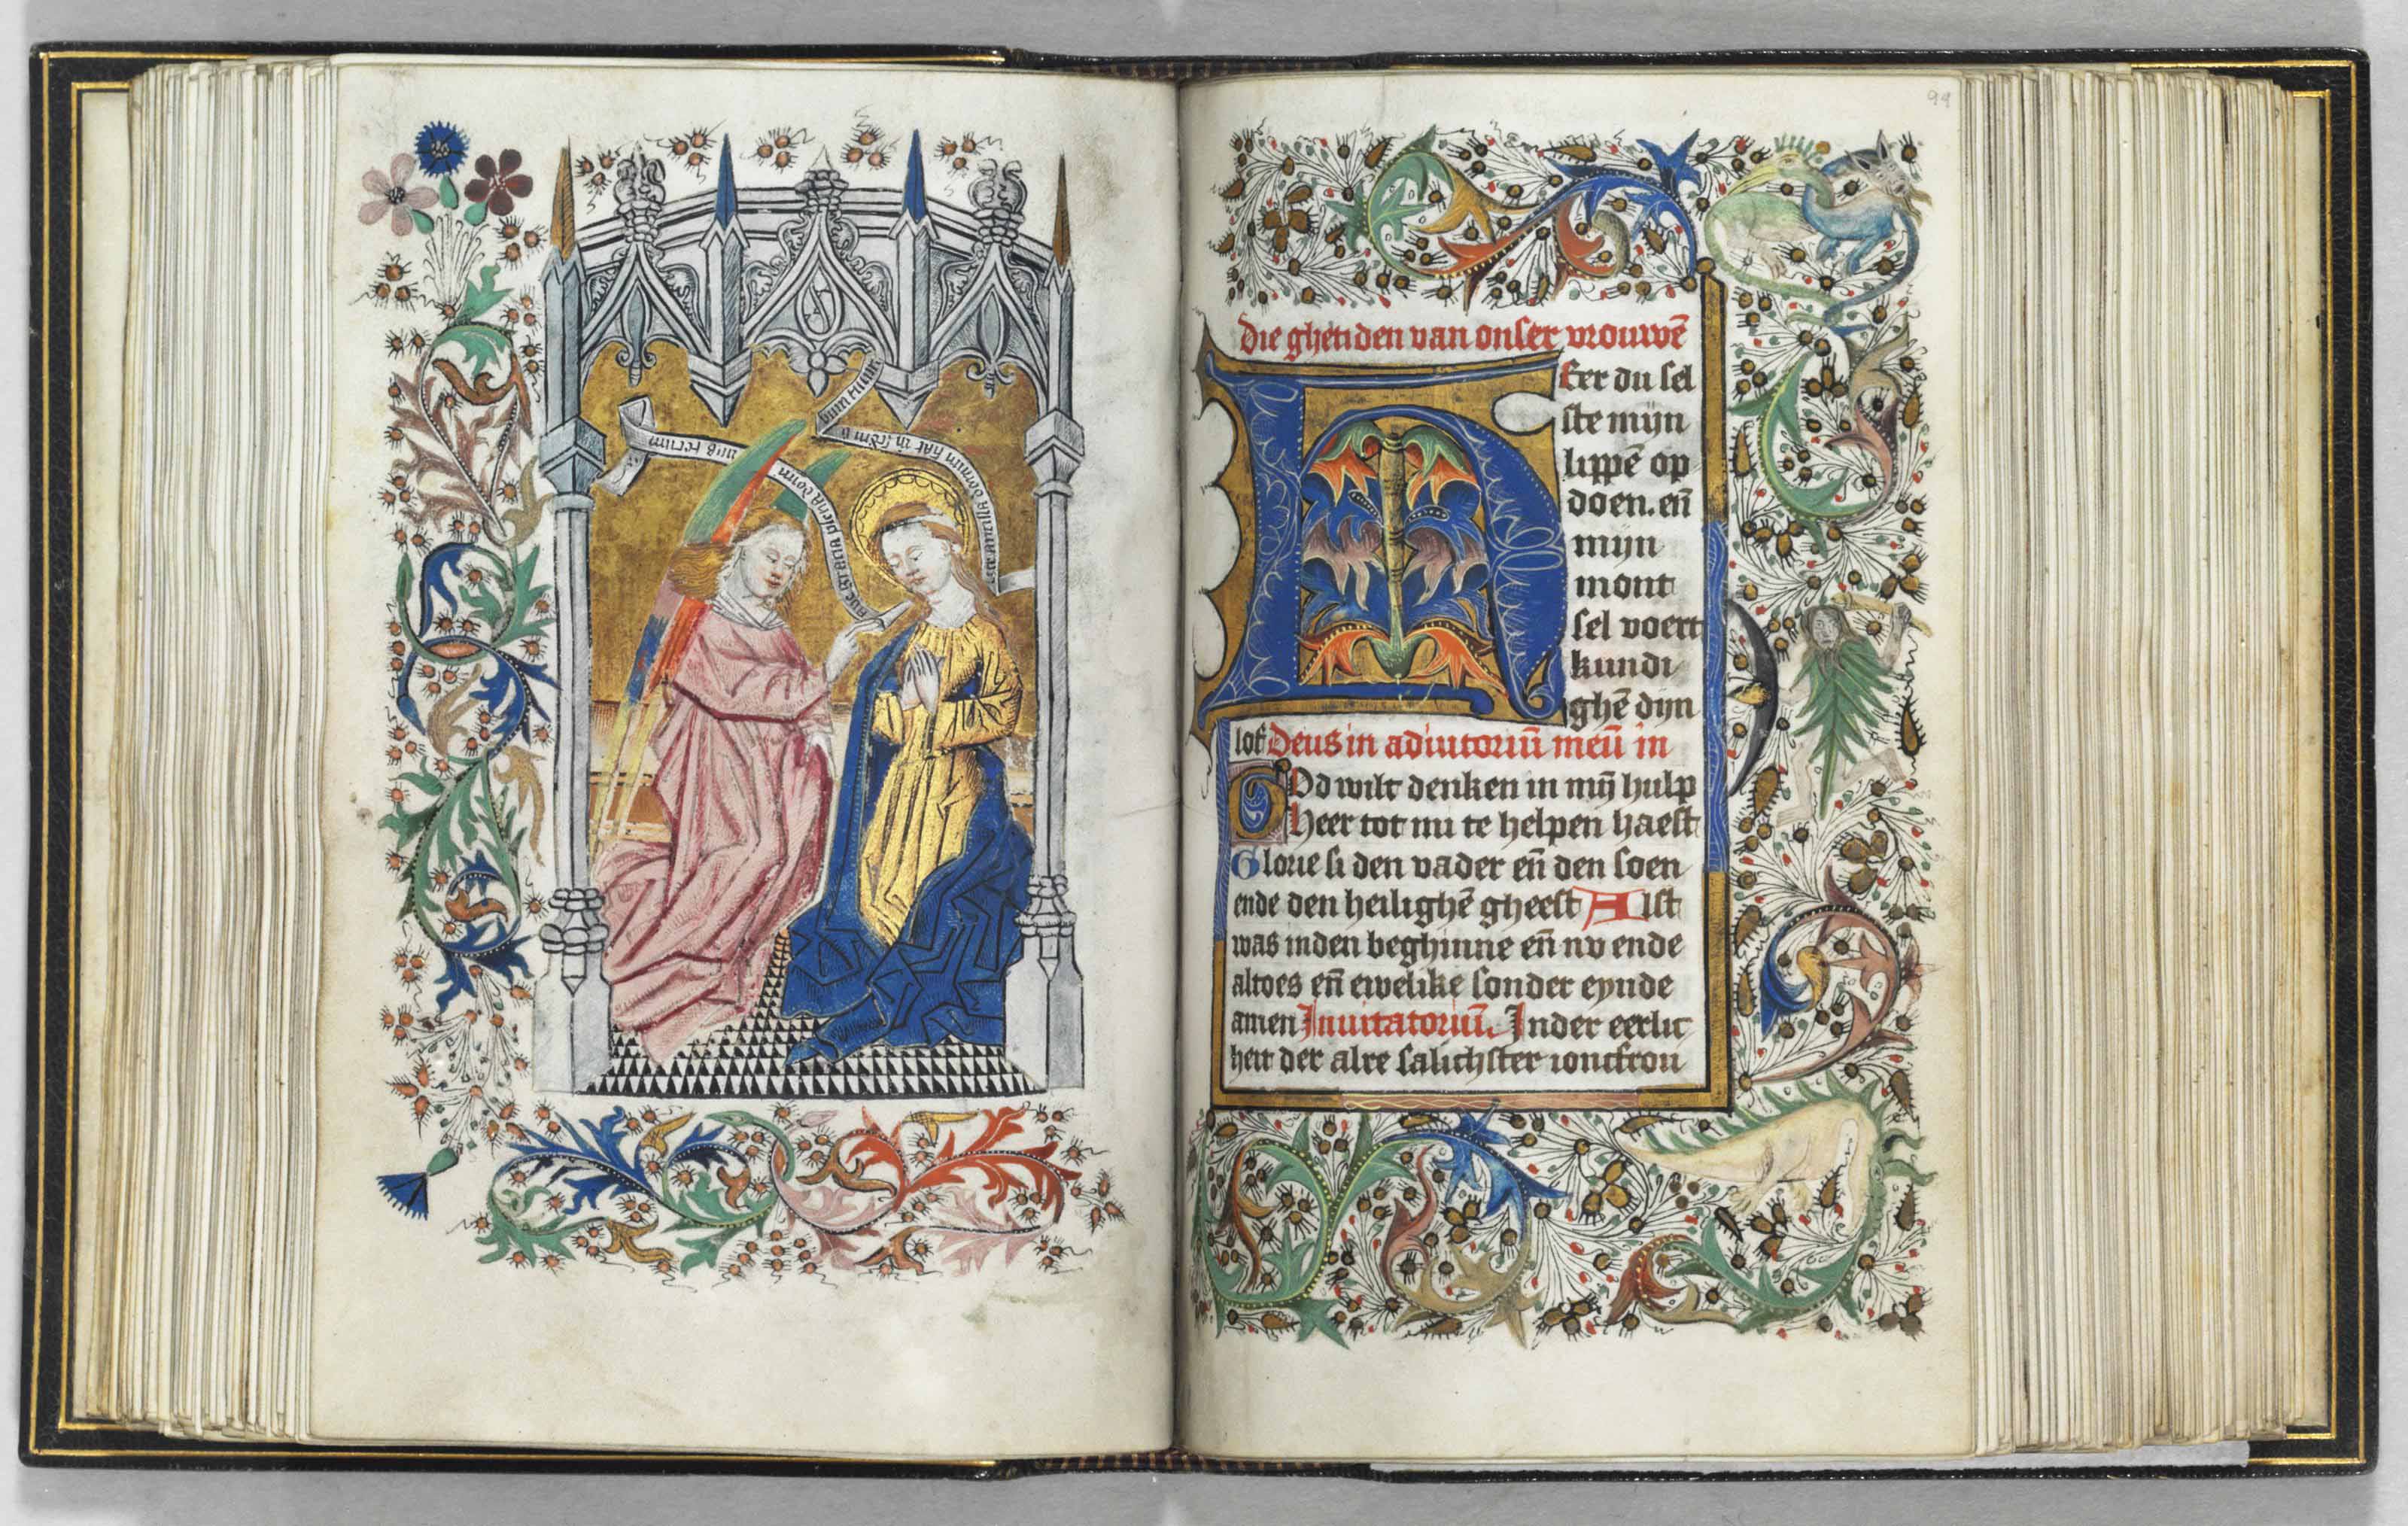 aue gracia plena domi nus tecum
ecce ancilla domini fiat m
dum
94
die ghetiden van onser vrouwē
HEer du sel
ste mijn
lippē op
doen. en̄
mijn
mont
sel voert
kundi
ghē dijn
lof Deus in adiutoriū meū in
GOd wilt denken in mij̄ hulp
heer tot mi te helpen haest
Glorie si den vader en̄ den soen
ende den heilighē gheest Alst
was inden beghinne en̄ nv ende
altoes en̄ ewelike sonder eynde
amen Inuitatoriū. Inder eerlic
heit der alre salichster ioncfrou